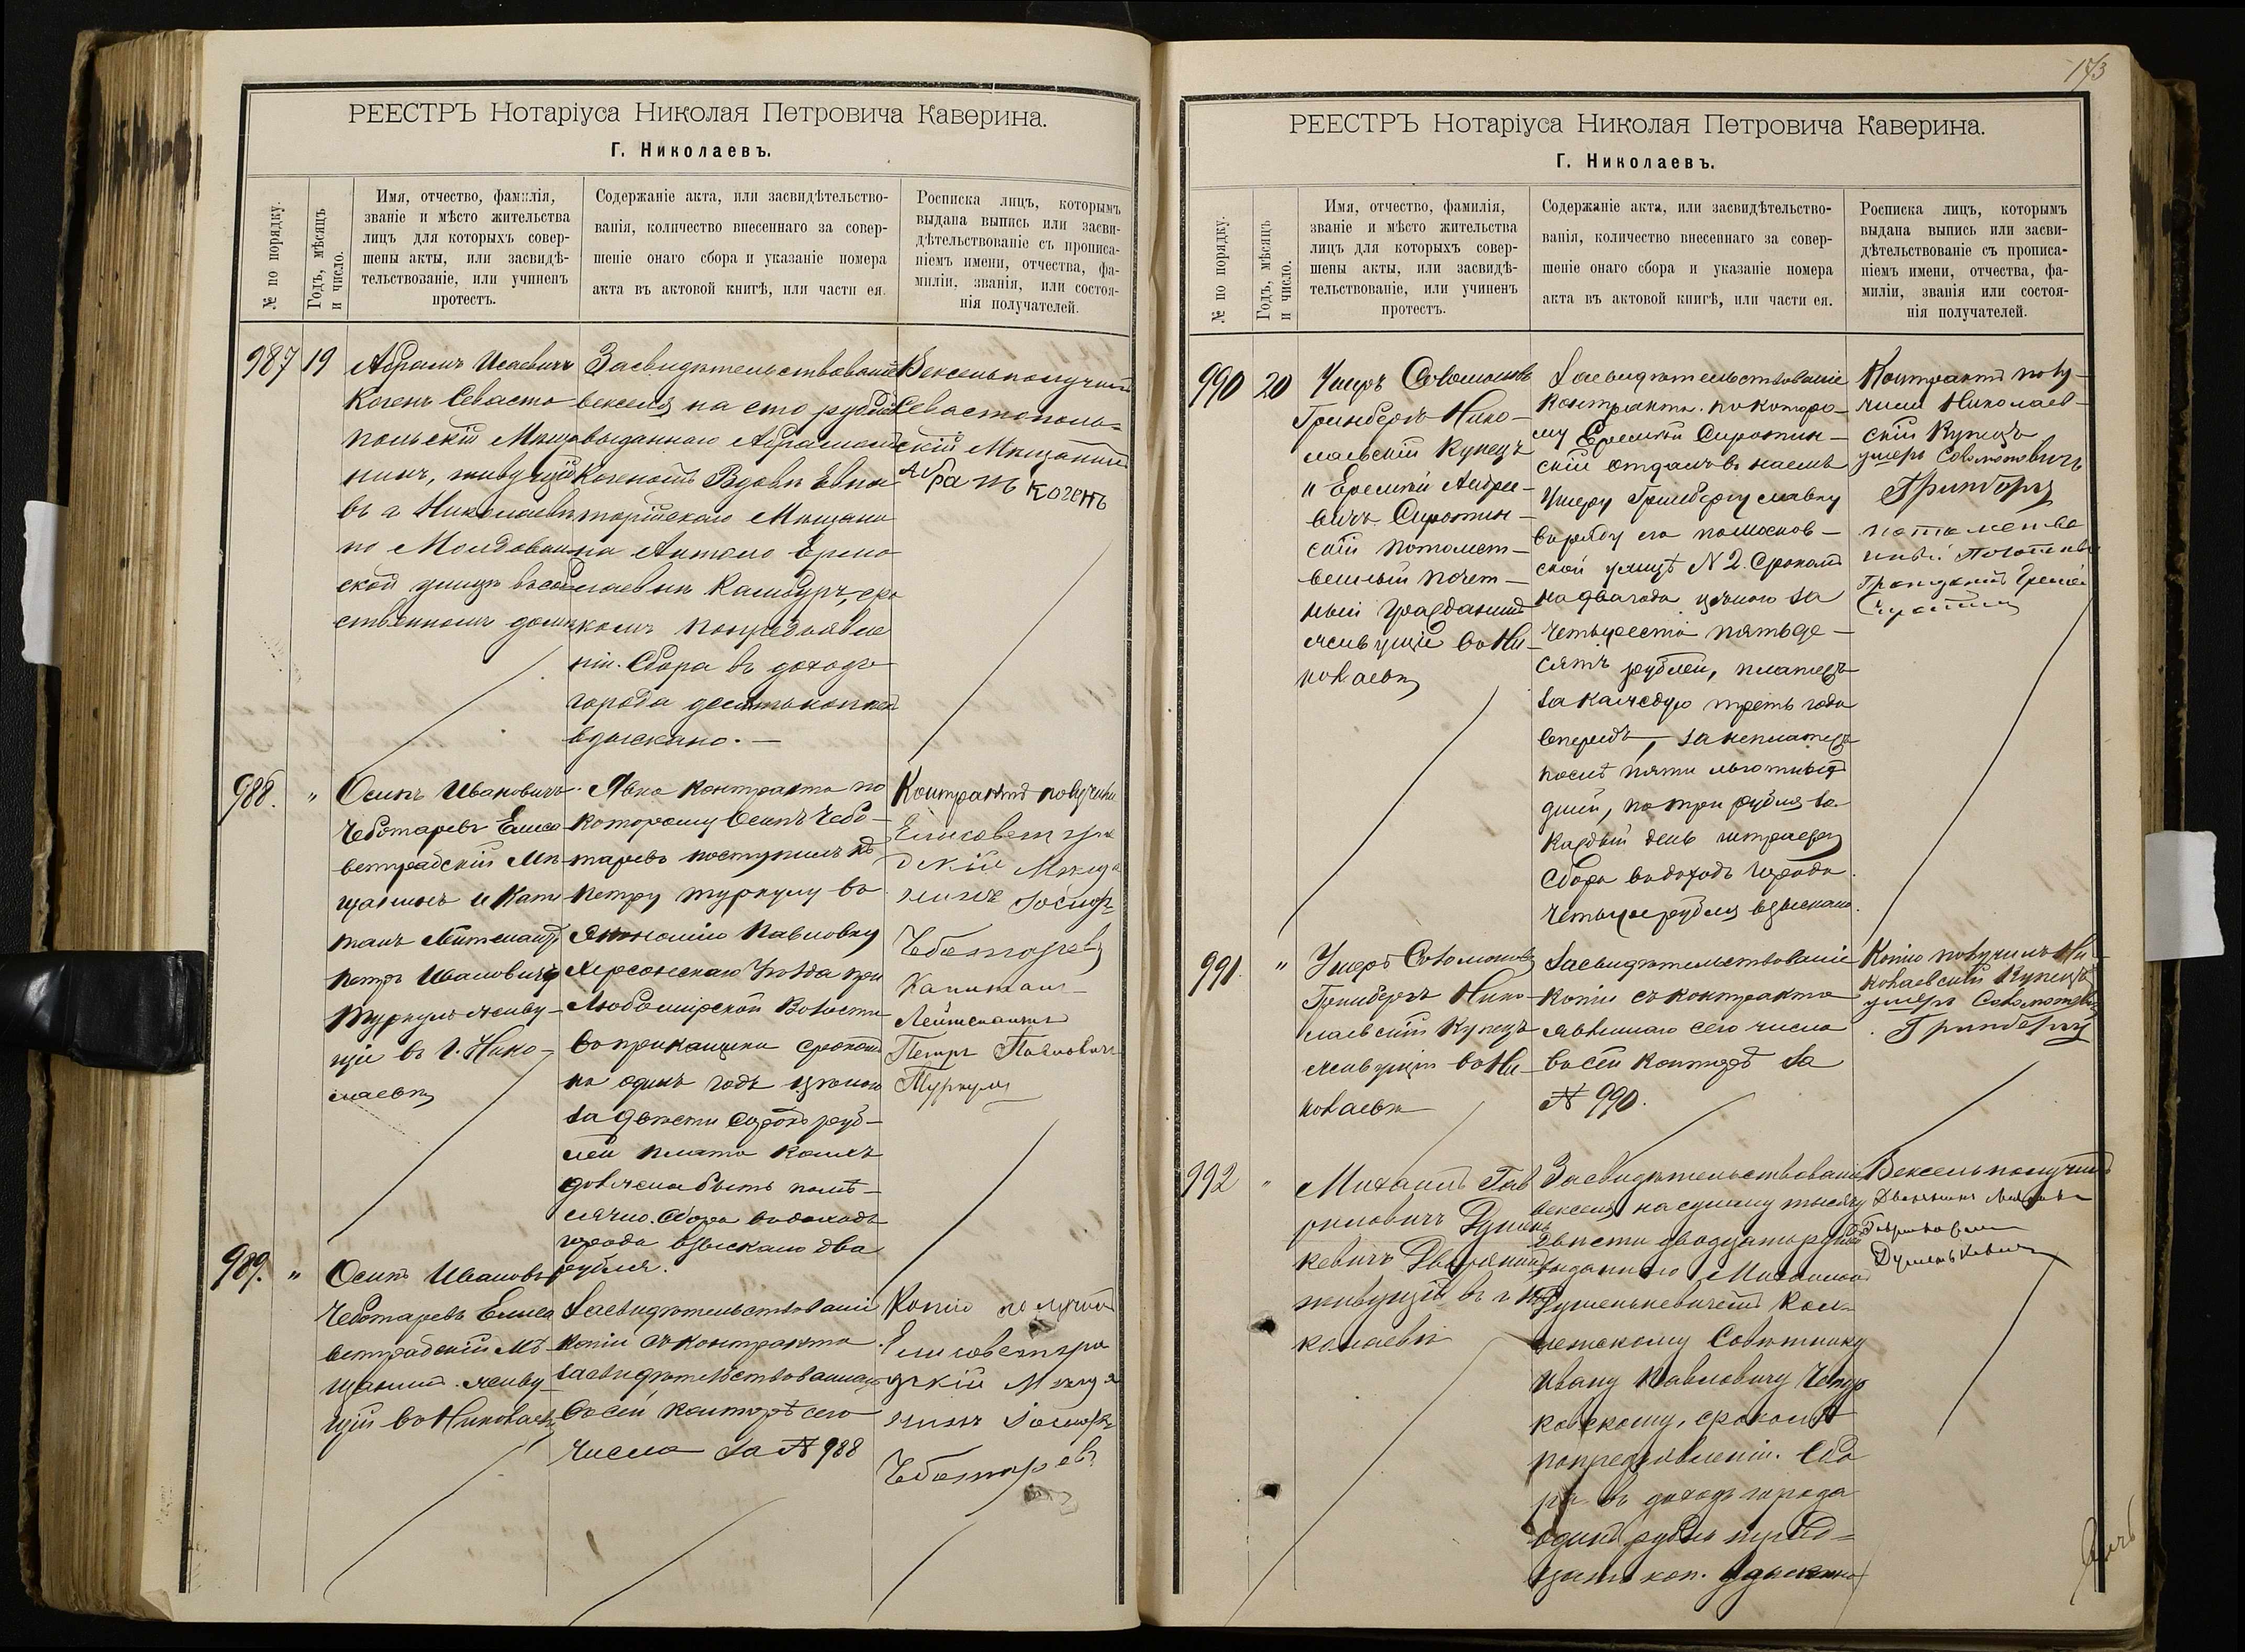 РЕЕСТРЪ Нотаріуса Николая Петровича Каверина.
Г. Николаевъ.
№ по порядку.
Годъ, мѣсяцъ
и число.
Имя, отчество, фамилія,
званіе и мѣсто жительства
лицъ для которыхъ совер-
шены акты, или засвидѣ-
тельствованіе, или учиненъ
протестъ.
Содержаніе акта, или засвидѣтельство-
ванія, количество внесеннаго за совер-
шеніе онаго сбора и указаніе номера
акта въ актовой книгѣ, или части ея.
Росписка лицъ, которымъ
выдана выпись или засви-
дѣтельствованіе съ прописа-
ніемъ имени, отчества, фа-
миліи, званія, или состоя-
нія получателей.
987
19
Абрамъ Исаевичъ
Когенъ Севасто
польскій Мѣща
нинъ, живущій
въ г Николаевѣ
по Молдаван
ской улицѣ въ соб
ственномъ домѣ
Засвидѣтельствованіе
векселя на сто рублей
выданнаго Абрамомъ
Когеномъ Вдовѣ Евпа
торійскаго Мѣщани
на
комъ по предъявле
ніи. Сбора въ доходъ
города десять копѣекъ
взыскано. —
Вексель получилъ
Севастополь=
скій Мѣщанинъ
Абрамъ Когенъ
988.
"
Осипъ Ивановичъ
Чеботаревъ Елиса
ветградскій Мѣ
щанинъ и Капи
танъ Лейтенантъ
Петръ Ивановичъ
Туркулъ живу-
щіе въ г. Нико-
лаевѣ
Явка контракта по
которому Осипъ Чебо-
таревъ поступилъ къ
Петру Туркулу въ
Экономію Павловку
Херсонскаго Уѣзда при
Любомирской Волости
въ прикащики срокомъ
на одинъ годъ цѣною
за двѣсти сорокъ руб-
лей плата коихъ
должна быть помѣ-
сячно. Сбора въ доходъ
города взыскано два
рубля.
Контрактъ получили
Елисаветгра
дскій Мѣща
нинъ Іосифъ
Чеботаревъ
Капитанъ-
Лейтенантъ
Петръ Павловичъ
Туркулъ
989.
"
Осипъ Ивановъ
Чеботаревъ Елиса
ветградскій Мѣ
щанинъ живу-
щій въ Николаевѣ
Засвидѣтельствованіе
копіи съ контракта
засвидѣтельствованнаго
въ сей конторѣ сего
числа за № 988
Копію получилъ
Елисаветгра
дскій Мѣща
нинъ Іосифъ
Чеботаревъ
173
РЕЕСТРЪ Нотаріуса Николая Петровича Каверина.
Г. Николаевъ.
№ по порядку.
Годъ, мѣсяцъ
и число.
Имя, отчество, фамилія,
званіе и мѣсто жительства
лицъ для которыхъ совер-
шены акты, или засвидѣ-
тельствованіе, или учиненъ
протестъ.
Содержаніе акта, или засвидѣтельство-
ванія, количество внесеннаго за совер-
шеніе онаго сбора и указаніе номера
акта въ актовой книгѣ, или части ея.
Росписка лицъ, которымъ
выдана выпись или засви-
дѣтельствованіе съ прописа-
ніемъ имени, отчества, фа-
миліи, званія или состоя-
нія получателей.
990
20
Ушеръ Соломоновъ
Гринбергъ Нико-
лаевскій Купецъ
и Еремѣй Андре-
евичъ Сиротин-
скій потомст-
венный почет-
ный гражданинъ
живущіе въ Ни-
колаевѣ
Засвидѣтельствованіе
контракта по которо-
му Еремѣй Сиротин-
скій отдалъ въ наемъ
Ушеру Гринбергу лавку
въ ряду его по Москов-
ской улицѣ № 2. Срокомъ
на два года цѣною за
четыреста пятьде-
сятъ рублей, платежъ
за каждую треть года
впередъ, за неплатежъ
послѣ пяти льготныхъ
дней, по три рубля за
каждый день штрафу
Сбора въ доходъ города
четыре рубля взыскано.
Контрактъ полу-
чили Николаев-
скій Купецъ
Ушеръ Соломоновичъ
Гринбергъ
991.
"
Ушеръ Соломоновъ
Гринбергъ Нико-
лаевскій Купецъ
живущій въ Ни-
колаевѣ
Засвидѣтельствованіе
копіи съ контракта
явленнаго сего числа
въ сей конторѣ за
№ 990.
Копію получилъ Ни-
колаевскій Купецъ
Ушеръ Соломоновичъ
Гринбергъ
992
"
Михаилъ Гав
риловичъ Думень
кевичъ Дворянинъ
живущій въ г Ни
колаевѣ
Засвидѣтельствованіе
векселя на сумму тысячу
двѣсти двадцать рублей
выданнаго Михаиломъ
Думенькевичемъ Кол-
лежскому Совѣтнику
Ивану Павловичу
срокомъ
по предъявленіи. Сбо
ра въ доходъ города
одинъ рубль
цать коп. взыскано
Вексель получилъ
Дворянинъ Михаилъ
Гавриловичъ
Думенькевичъ